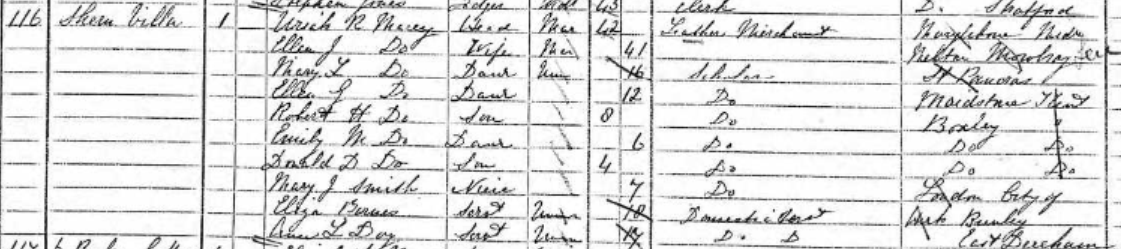 Stephen Lodger 43 Clerk D. Stafford
116 Shern Villa 1 Uriah R Macey Head Mar 42 Leather Merchant Marylebone Midx
Ellen J Do Wife Mar 41 Melton Mowbray
Mary L Do Daur Un 16 Scholar St Pancras
Ellen J Do Daur 12 Do Maidstone Kent
Robert H Do Son 8 Do Boxley "
Emily M Do Daur 6 Do Do Do
Donald D Do Son 4 Do Do Do
Mary J Smith Niece 7 Do London City of
Eliza Servt Unm 18 Domestic Servt
Servt Unm 17 Do D
117 1